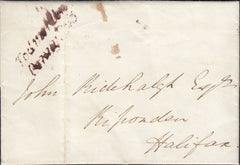 John Ridehalgh Esqr
Riponden
Halifax